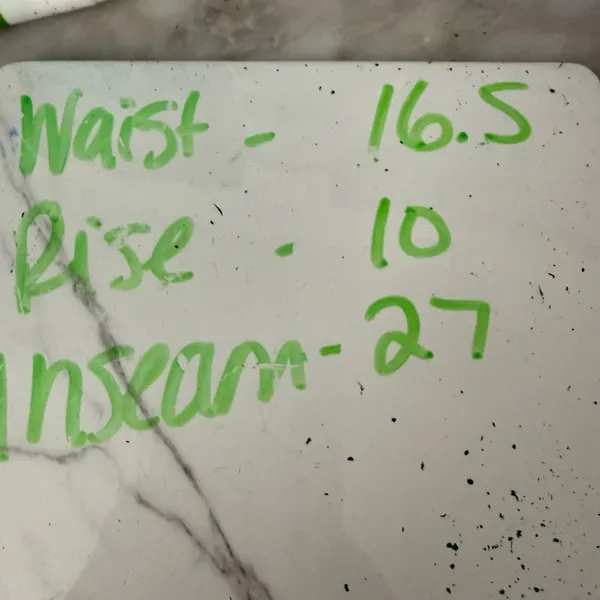 Waist - 16.5
Rise - 10
Inseam - 27